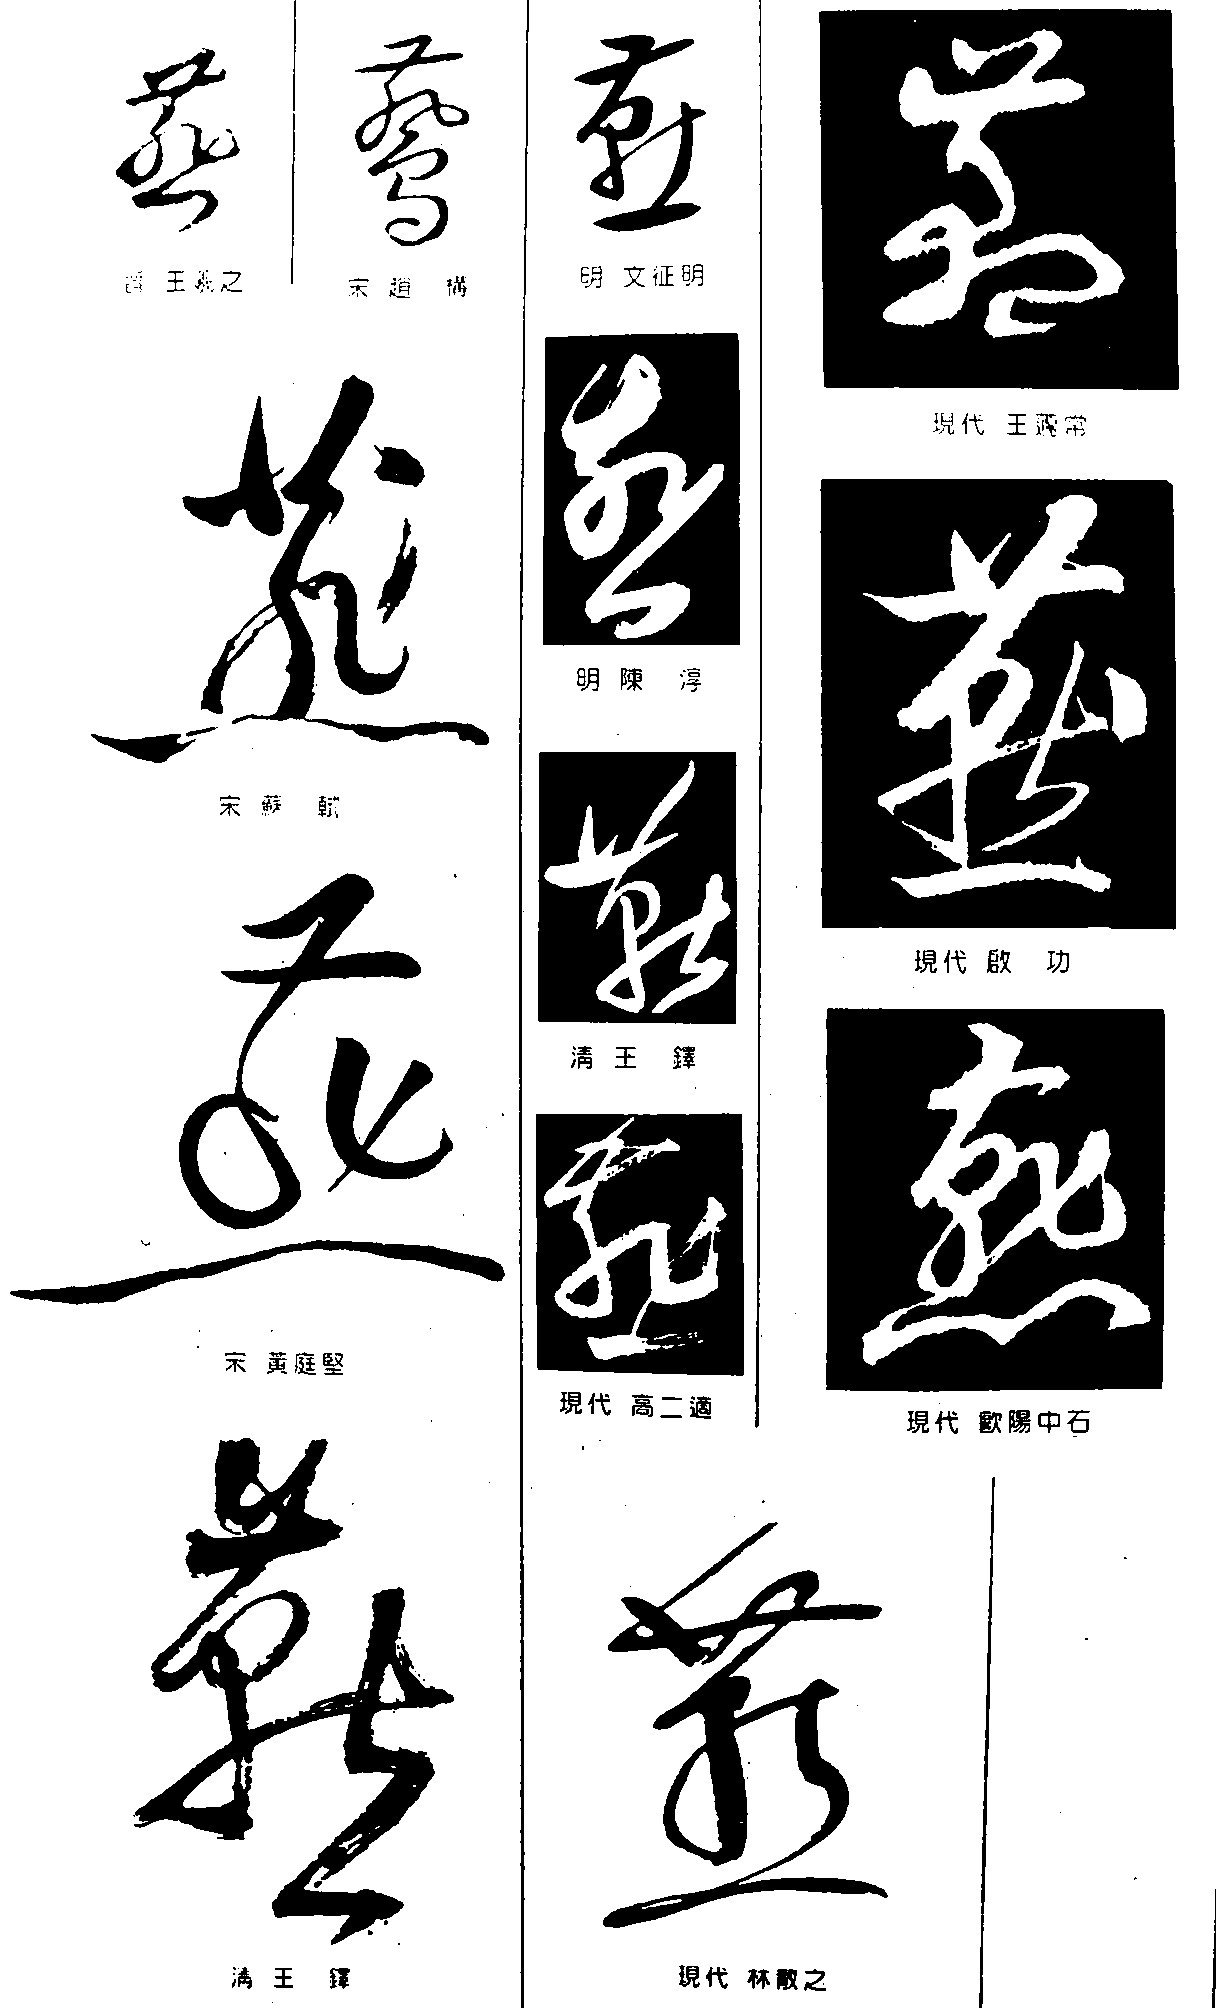 燕
晉 王羲之
燕
宋 趙構
燕
宋 蘇軾
燕
宋 黃庭堅
燕
清 王鐸
燕
明 文征明
燕
明 陳淳
燕
清 王鐸
燕
現代 高二適
燕
現代 林散之
燕
現代 王蘧常
燕
現代 啟功
燕
現代 歐陽中石